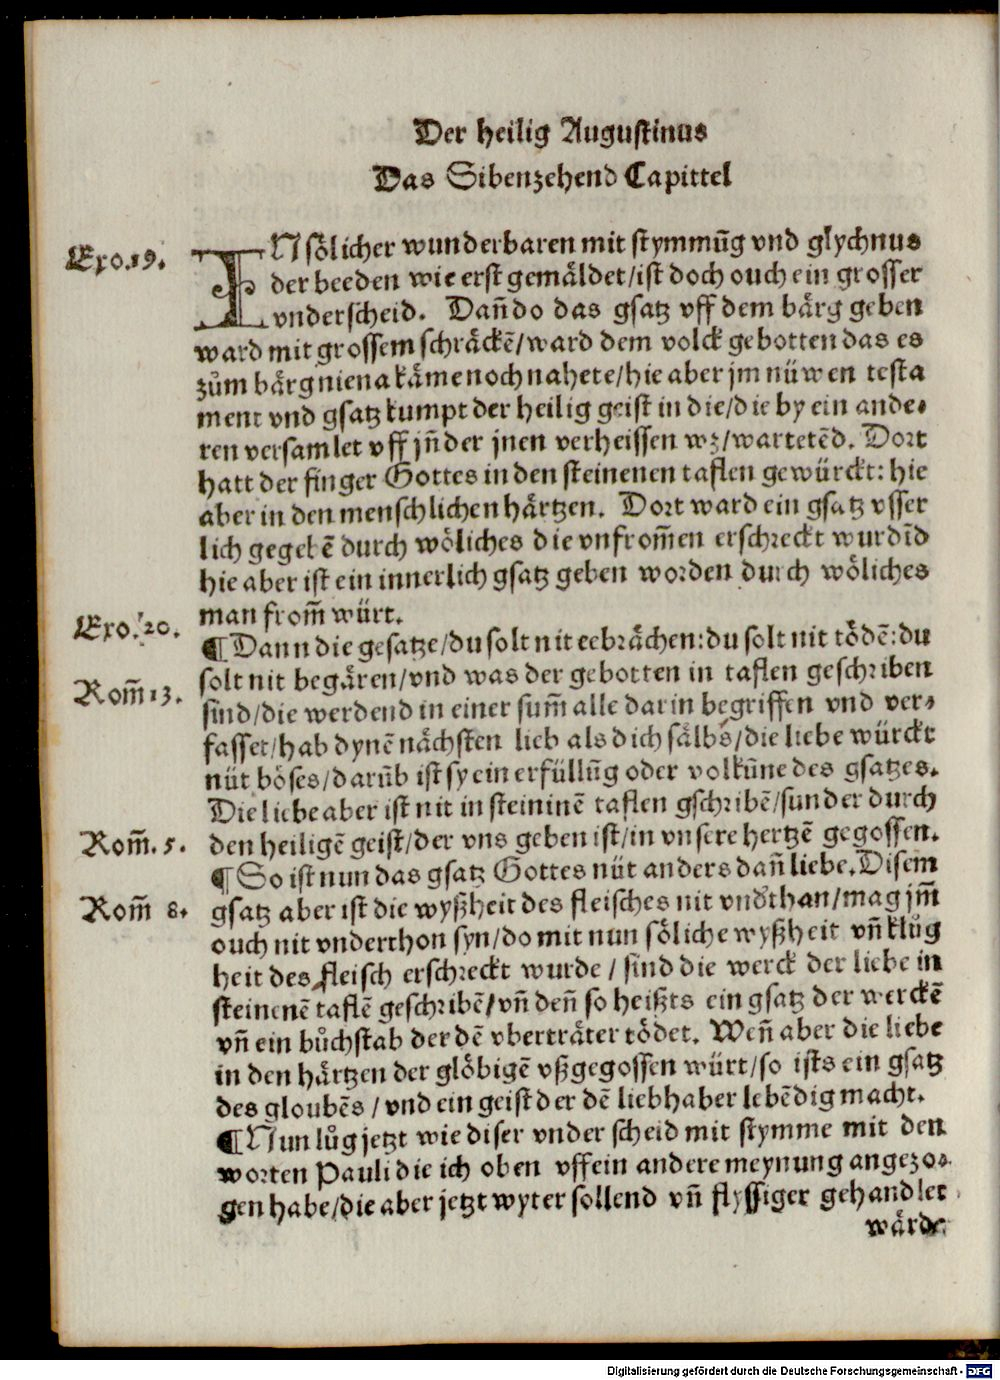 Der heilig Augustinus
Das Sibenzehend Capittel
Exo.19.
IN sölicher wunderbaren mit stymmūg vnd glychnus
der beeden wie erst gemäldet/ist doch ouch ein grosser
vnderscheid. Dañ do das gsatz vff dem bärg geben
ward mit grossem schräckē/ward dem volck gebotten das es
zům bärg niena käme noch nahete/hie aber jm nüwen testa
ment vnd gsatz kumpt der heilig geist in die/die by ein ande⸗
ren versamlet vff jñ der jnen verheissen wz/wartetēd. Dort
hatt der finger Gottes in den steinenen taflen gewürckt: hie
aber in den menschlichen härtzen. Dort ward ein gsatz vsser
lich gegebē durch wöliches die vnfrom̄en erschreckt wurdīd
hie aber ist ein innerlich gsatz geben worden durch wöliches
man from̄ würt.
Exo. 20.
¶ Dann die gesatze/du solt nit eebrächen: du solt nit tödē: du
solt nit begären/vnd was der gebotten in taflen geschriben
Rom̄ 13.
sind/die werdend in einer sum̄ alle darin begriffen vnd ver⸗
fasset/hab dynē nächsten lieb als dich sälbs/die liebe würckt
nüt böses/darūb ist sy ein erfüllūg oder volkūne des gsatzes.
Die liebe aber ist nit in steininē taflen gschribē/sunder durch
Rom̄. 5.
den heiligē geist/der vns geben ist/in vnsere hertzē gegossen.
¶ So ist nun das gsatz Gottes nüt anders dañ liebe. Disem
Rom̄ 8.
gsatz aber ist die wyßheit des fleisches nit vnđthan/mag jm̄
ouch nit vnderthon syn/do mit nun söliche wyßheit vñ klůg
heit des fleisch erschreckt wurde/ sind die werck der liebe in
steinenē taflē geschribē/vñ deñ so heißts ein gsatz der werckē
vñ ein bůchstab der dē vberträter tödet. Weñ aber die liebe
in den härtzen der glöbigē vßgegossen würt/so ists ein gsatz
des gloubēs / vnd ein geist der dē liebhaber lebēdig macht.
¶ Nun lůg jetzt wie diser vnder scheid mit stymme mit den
worten Pauli die ich oben vff ein andere meynung angezo⸗
gen habe/die aber jetzt wyter sollend vñ flyssiger gehandlet
wärde
Digitalisierung gefördert durch die Deutsche Forschungsgemeinschaft - DFG